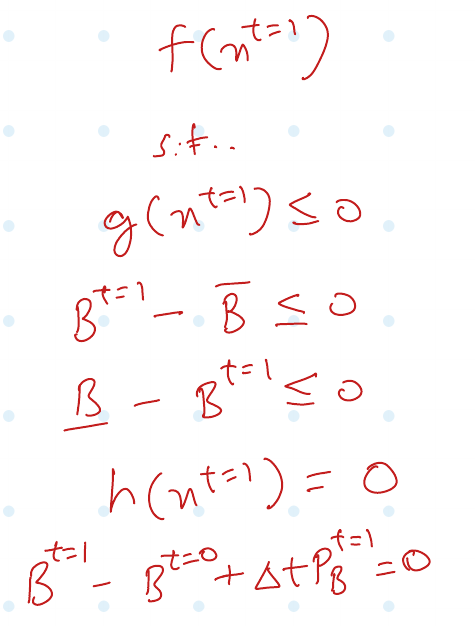 f(x^{t=1})
s.t..
g(x^{t=1}) ≤ 0
B^{t=1} - B̅ ≤ 0
B̲ - B^{t=1} ≤ 0
h(x^{t=1}) = 0
B^{t=1} - B^{t=0} + Δt P_B^{t=1} = 0